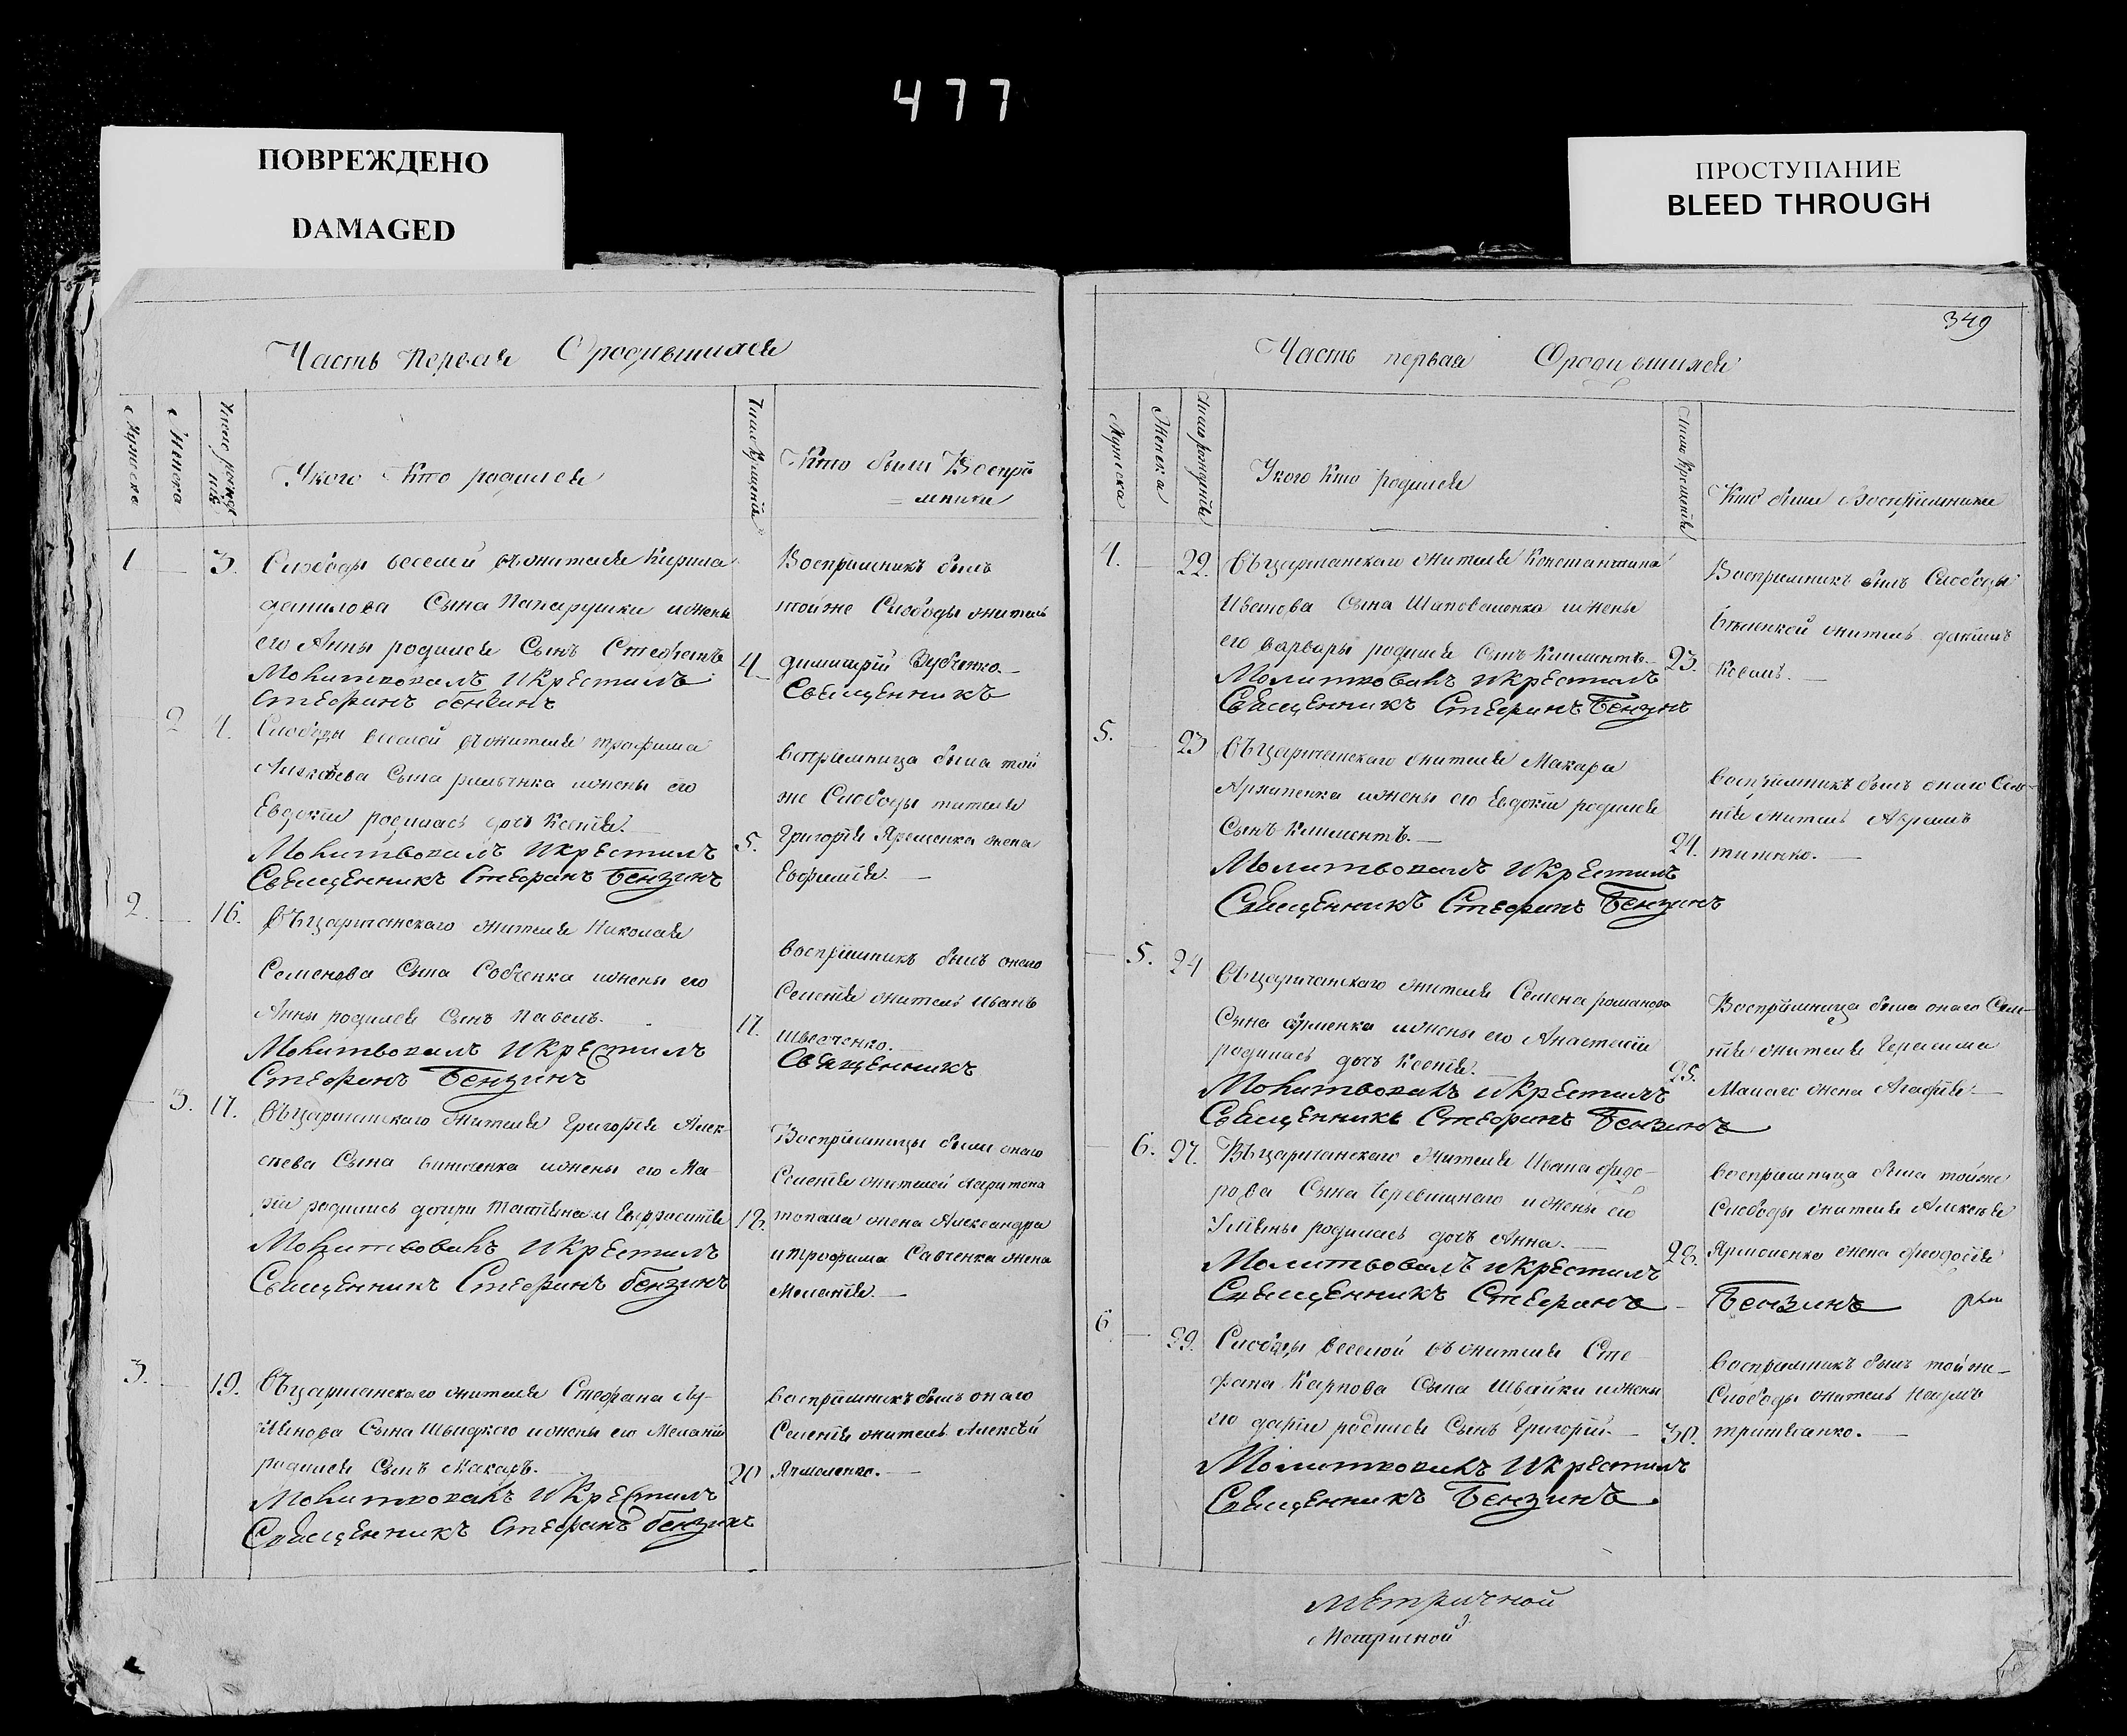 477
ПОВРЕЖДЕНО
DAMAGED
ПРОСТУПАНИЕ
BLEED THROUGH
Часть Первая О родившихся
Мужеска
Женска
Число рожденія
У кого кто родился
Число Крещенія
Кто были Воспрі
=емники
1 3. Слободы веселой въ жителя Кирила
данилова Сына Папарушки и жены
его Анны родился Сынъ Стефанъ
Молитвовалъ И Крестилъ
Стефанъ бензинъ
4
Воспріемникъ былъ
тойже Слободы житель
димитрій Зубченко.
Священникъ
2 4. Слободы веселой въ жителя трофима
Алексѣева Сына и жены его
Евдокіи родилась дочь Ксенія.
Молитвовалъ И Крестилъ
Священникъ Стефанъ Бензинъ
5.
воспріемница была той
же Слободы жителя
Григорія Ярещенка жена
Евфимія
2. 16. въ царичанскаго жителя Николая
Семенова Сына Собченка и жены его
Анны родился Сынъ Павелъ.
Молитвовалъ И Крестилъ
Стефанъ Бензинъ
17.
воспріемникъ былъ онаго
Селенія житель иванъ
швесченко.
Священникъ
3. 17. въ царичанскаго жителя Григорія Алек-
сеева Сына и жены его Ма-
ріи родились дочери Татіана и Евфросинія
Молитвовалъ И Крестилъ
Священникъ Стефанъ бензинъ
18.
Воспріемницы были онаго
Селенія жителей харитона
жена Александра
и трофима Савченка жена
Меланія.
3. 19. въ царичанскаго жителя Стефана Лу-
кіянова Сына Швидкого и жены его Меланіи
родился Сынъ Макаръ.
Молитвовалъ И Крестилъ
Священникъ Стефанъ бензинъ
20
воспріемникъ былъ онаго
Селенія житель Алексѣй
349
Часть первая О родившихся
Мужеска
Женска
Число рожденія
У кого кто родился
Число Крещенія
Кто были Воспріемники
4. 22. въ царичанскаго жителя Константина
Иванова Сына Шаповаленка и жены
его варвары родился Сынъ Климентъ.
Молитвовалъ И Крестилъ
Священникъ Стефанъ Бензинъ
23.
Воспріемникъ былъ Слободы
житель даніилъ
5. 23 въ царичанскаго жителя Макара
Архипенка и жены его Евдокіи родился
Сынъ Климентъ.
Молитвовалъ И Крестилъ
Священникъ Стефанъ Бензинъ
24.
воспріемникъ былъ онаго Селе-
нія житель Абрамъ
титенко.
5. 24 въ царичанскаго жителя Семена романова
Сына и жены его Анастасіи
родилась дочь Ксенія.
Молитвовалъ И Крестилъ
Священникъ Стефанъ Бензинъ
25.
Воспріемница была онаго Селе-
нія жителя Герасима
жена Агафія.
6. 27. Въ царичанскаго жителя Ивана федо-
рова Сына Черевишнаго и жены его
Уліяны родилась дочь Анна.
Молитвовалъ И Крестилъ
Священникъ Стефанъ
28.
воспріемница была тойже
Слободы жителя Алексѣя
Ярмоленка жена феодосія
Бензинъ
6 29. Слободы веселой въ жителя Сте-
фана Карпова Сына Швайки и жены
его дарьи родился Сынъ Григорій.
Молитвовалъ И Крестилъ
Священникъ Бензинъ
30.
воспріемникъ былъ тойже
Слободы житель Наумъ
Метричной
Метричной